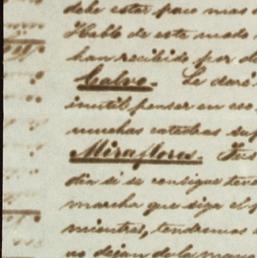 debe estar poco mas
Hable de este modo
han recibido por
Calvo. Le daré
inutil pensar en eso
muchas
Miraflores.
dia si se consigue
marcha que siga el
mientras, tendremos
no dejan de la mano